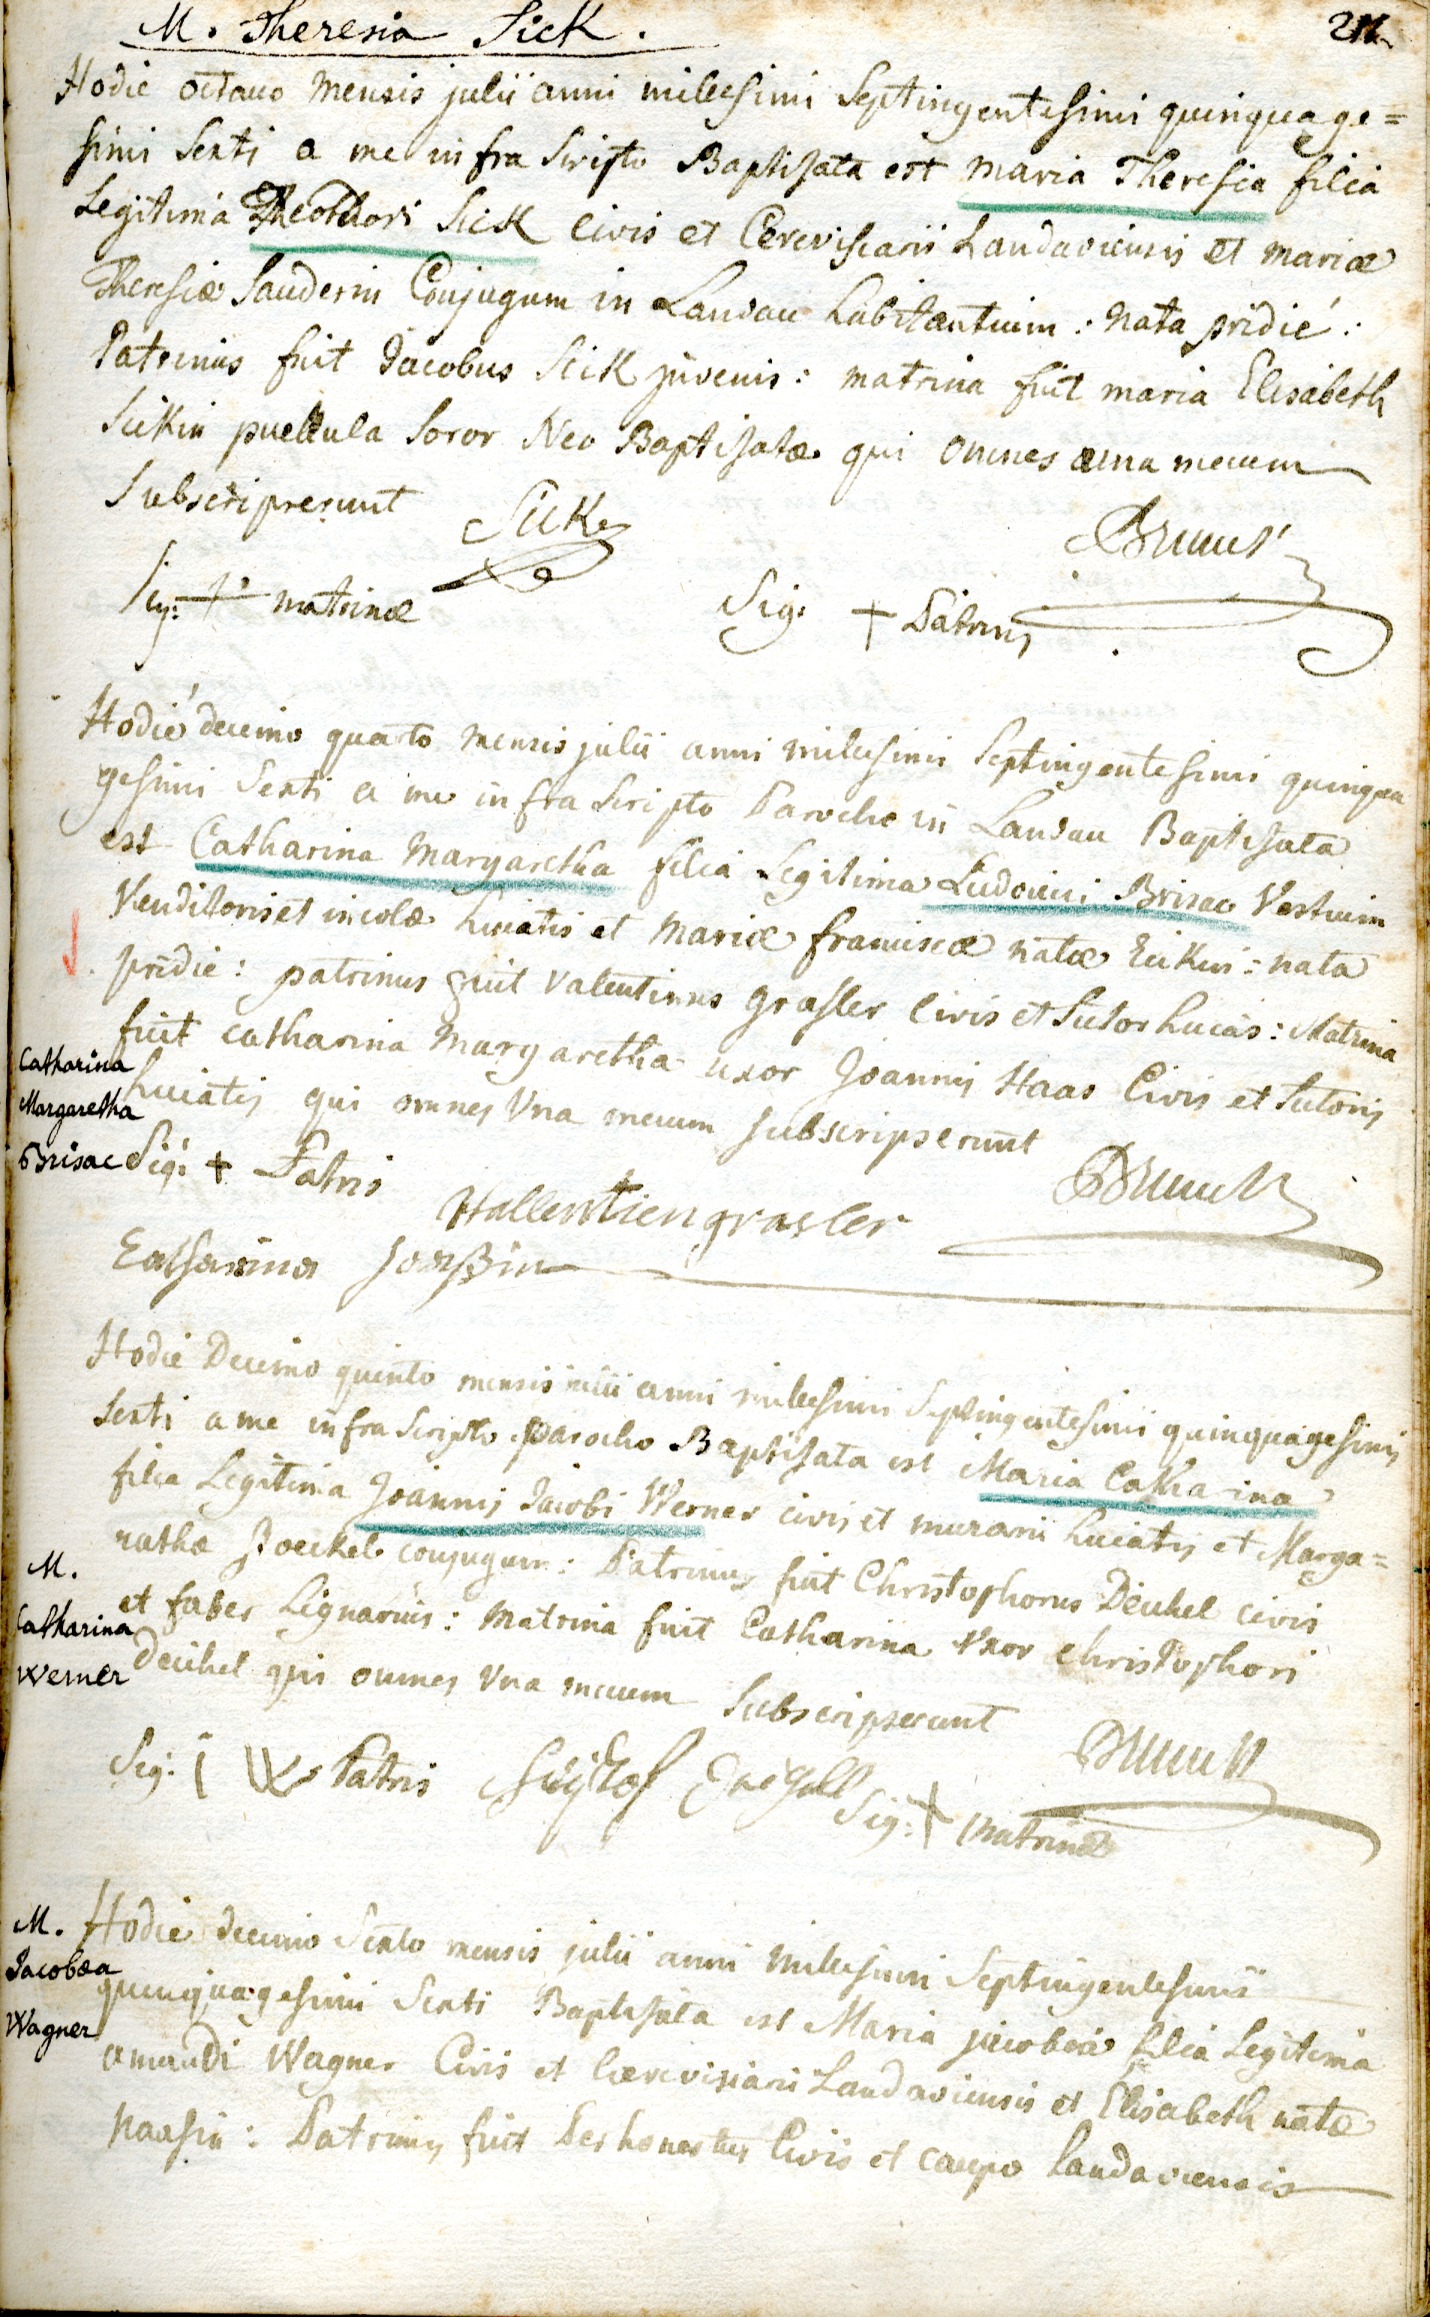 M. Theresia Sick.
Hodie octavo mensis julii anni millesimi Septingentesimi quinquage=
simi Sexti a me infra Scripto Baptisata est maria Theresia filia
Legitima Theodori Sick Civis et Cerevisiarii Landaviensis et mariæ
Theresiæ Sauderin Conjugum in Landau habitantium : nata pridie :
Patrinus fuit Jacobus Sick juvenis : matrina fuit maria Elisabeth
Sickin puellula Soror Neo Baptisatæ qui omnes una mecum
Subscripserunt
Sick
Sig: + matrinæ
Sig: + Patrini
Hodie decimo quarto mensis julii anni millesimi Septingentesimi quinqua
gesimi Sexti a me infra Scripto Parocho in Landau Baptisata
est Catharina Margaretha filia Legitima Ludovici Brisac Vestium
Venditoris et incolæ huiatis et Mariæ franciscæ natæ Eickin : nata
pridie : patrinus fuit Valentinus grasler Civis et Sutor huias : Matrina
fuit catharina Margaretha uxor Joannis Haas Civis et Sutoris
Catharina
Margaretha
Brisac
huiatis qui omnes Una mecum subscripserunt
Sig: + Patris
Hallentien grasler
Catharina
Hodie Decimo quinto mensis julii anni millesimi Septingentesimi quinquagesimi
Sexti a me infra Scripto parocho Baptisata est Maria Catharina
filia Legitima Joannis Jacobi Werner civis et murarii huiatis et Marga=
rethæ Joeckel conjugum : Patrinus fuit Christophorus Deuchel civis
M.
Catharina
Werner
et faber Lignarius : Matrina fuit Catharina Uxor Christophori
Deuchel qui omnes Una mecum Subscripserunt
Sig: I W Patris
Sig: + Matrinæ
M.
Jacobæa
Wagner
Hodie decimo Sexto mensis julii anni Millesimi Septingentesimi
quinquagesimi Sexti Baptisata est Maria jacobea filia Legitima
amandi Wagner Civis et Cerevisiarii Landaviensis et Elisabeth natæ
haasin : Patrinus fuit Civis et caupo Landaviensis